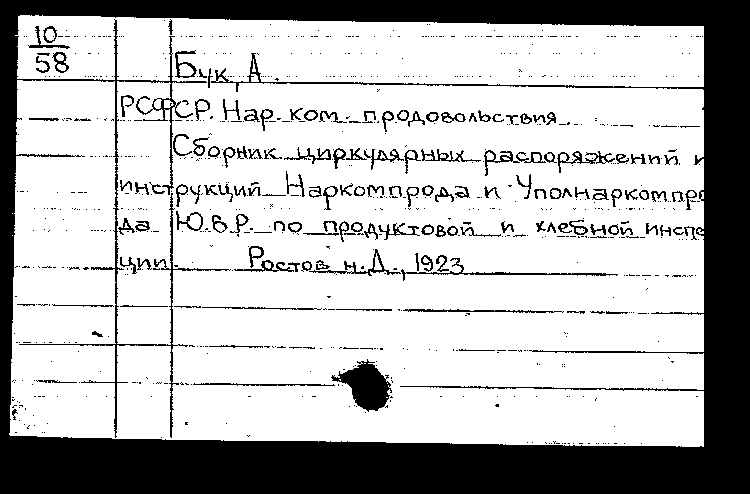 10
58
Бук, А.
РСФСР. Нар. ком. продовольствия.
Сборник циркулярных распоряжений и
инструкций Наркомпрода и Уполнаркомпро
да Ю.В.Р. по продуктовой и хлебной инспе
ции. Ростов н.Д., 1923